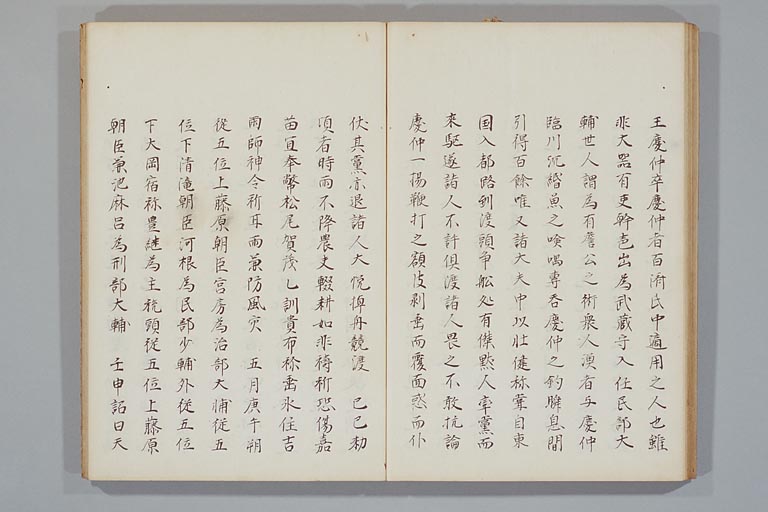 王慶仲卒慶仲者百済氏中適用之人也雖
非大器有吏幹芭出為武蔵守入任民部大
輔世人謂為有詹公之術衆人漁者与慶仲
臨川沉緡魚之唼喁専呑慶仲之鈎瞬息間
引得百餘唯又諸大夫中以壮健称輩自東
国入都路到渡頭争舩処有傑黠人率党而
来駆逐諸人不許倶渡諸人畏之不敢抗論
慶仲一揚鞭打之額皮剥垂而覆面惑而仆
伏其党亦退諸人大悦棹舟競渡　己巳勅
頃者時雨不降農夫輟耕如非祷祈恐傷嘉
苗宜奉幣松尾賀茂乙訓貴布祢垂氷住吉
雨師神令祈耳雨兼防風灾　五月庚午朔
従五位上藤原朝臣宮房為治部大輔従五
位下清滝朝臣河根為民部少輔外従五位
下大岡宿祢豊継為主税頭従五位上藤原
朝臣兼池麻呂為刑部大輔　壬申詔曰天